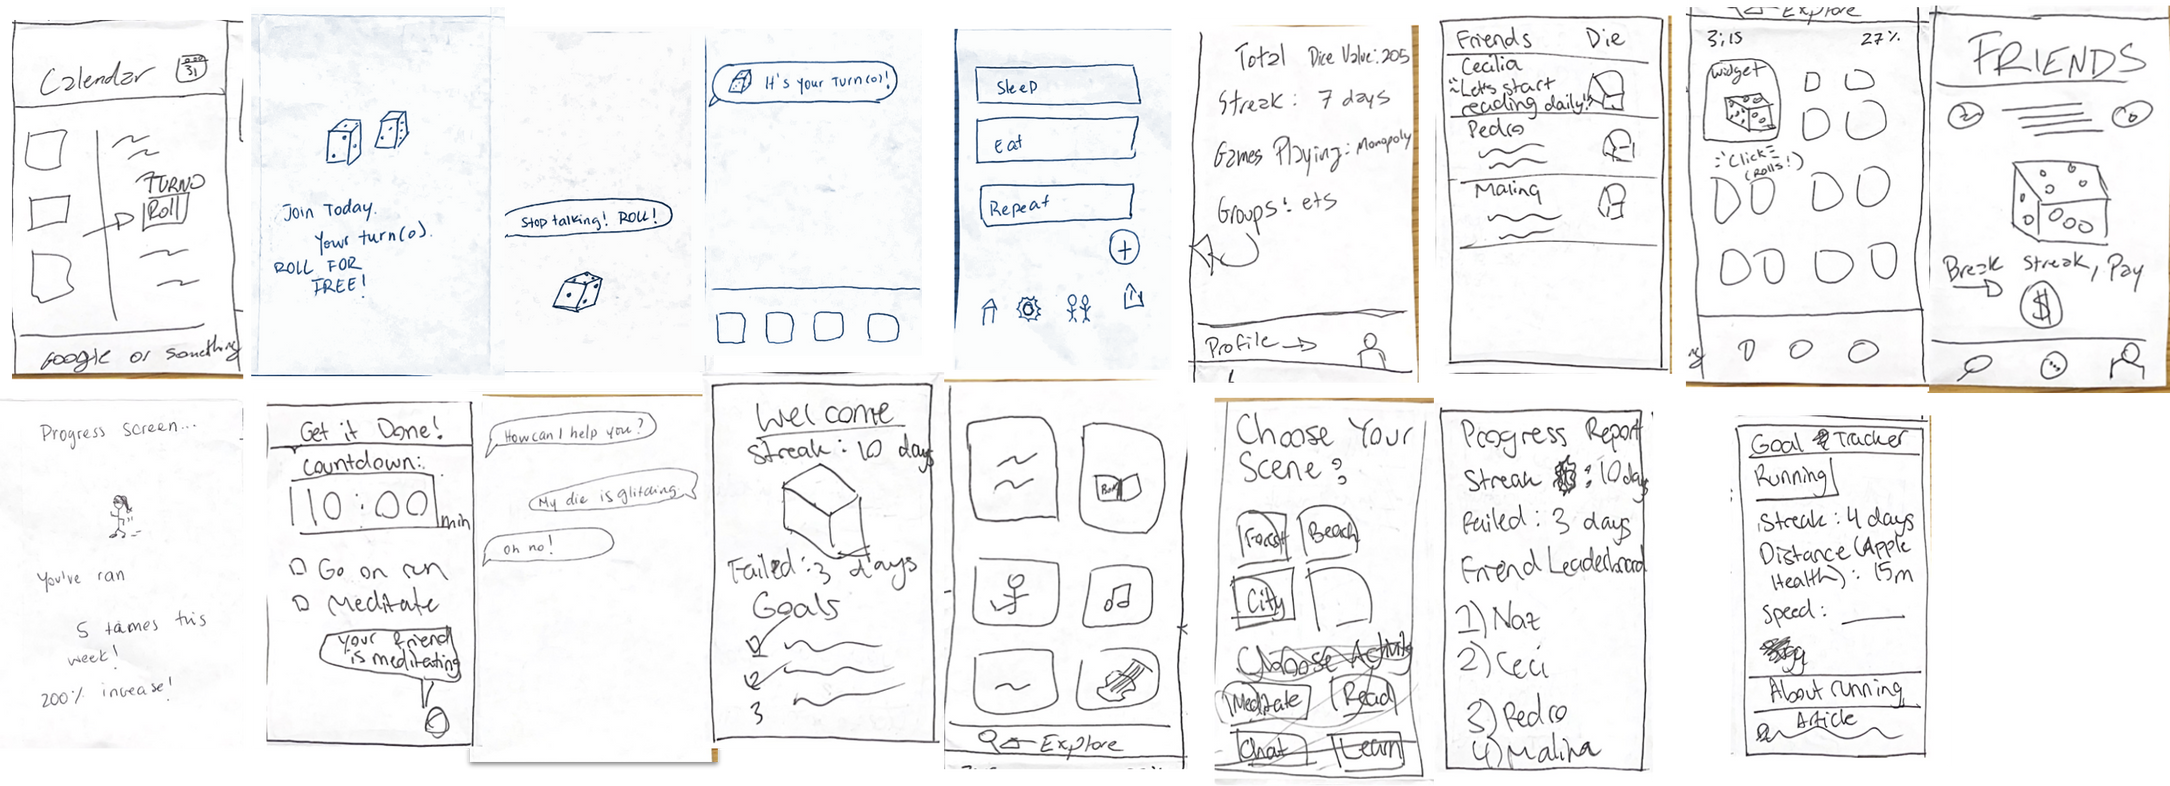 Calendar 31
TURNO
Roll
Google or something
Join Today.
Your turn(o).
ROLL FOR
FREE!
Stop talking! ROLL!
It's your Turn(o)!
Sleep
Eat
Repeat
Total Dice Value: 205
Streak: 7 days
Games Playing: Monopoly
Groups: ets
Profile
Friends Die
Cecilia
Let's start
reading daily!!
Pedro
Malina
Explore
3:15 27%
widget
"Click"
(rolls!)
FRIENDS
Break Streak, Pay
$
Progress Screen...
You've ran
5 times this
week!
200% increase!
Get it Done!
Countdown:
10:00 min
Go on run
Meditate
Your friend
is meditating
How can I help you?
My die is glitching.
oh no!
Welcome
Streak: 10 days
Failed: 3 days
Goals
1
2
3
Book
Explore
Choose Your
Scene:
Forest Beach
City
Choose Activity
Meditate Read
Chat Learn
Progress Report
Streak: 10 days
Failed: 3 days
Friend Leaderboard
1) Naz
2) Ceci
3) Pedro
4) Malina
Goal Tracker
Running
Streak: 4 days
Distance (Apple
Health): 15m
Speed:
About running
Article